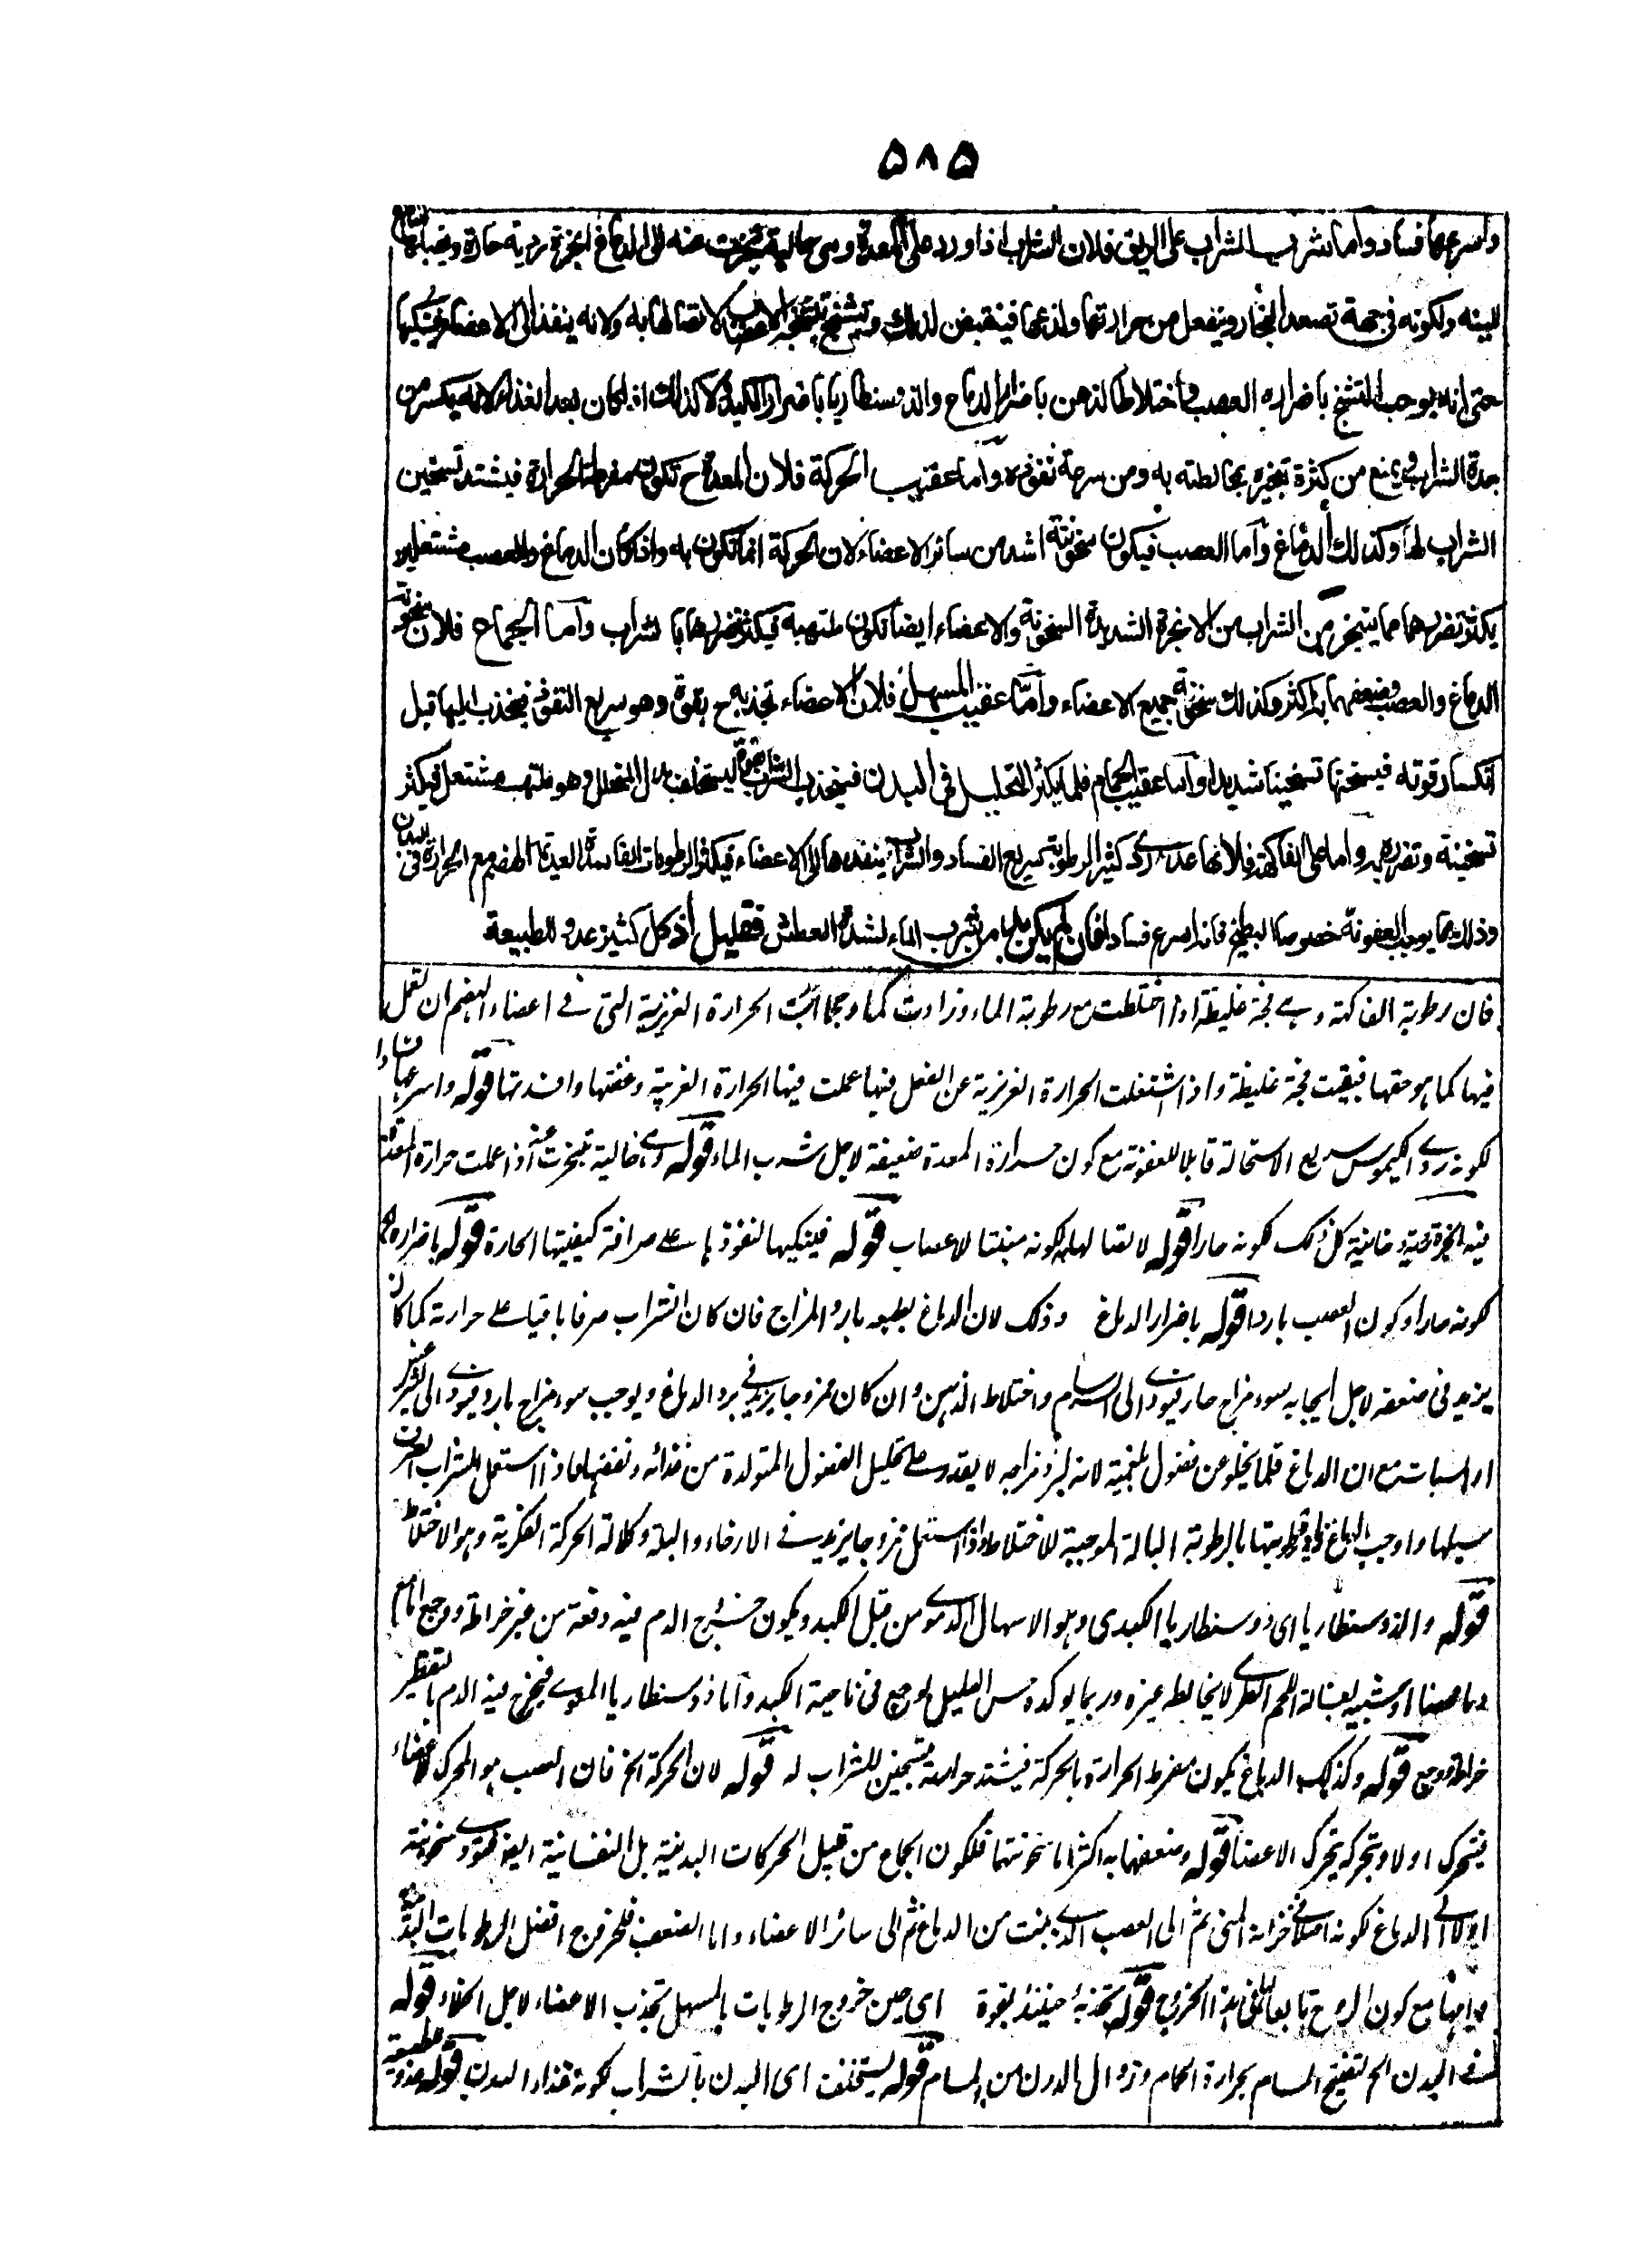 ٥٨٥
واسرعها فساد واما شرب الشراب على الريق فلان الشراب اذا ورد على المعدة وهي خالية تبخرت منه الى الدماغ ابخرة رديه حارة
للينه ولكونه في جهة تصعد البخار وينفعل من حرارتها ولذعها فينقبض لذلك وتتشنج الاعصاب لاتصالها به ولانه ينفذ الى الاعضاء فينكيها
حتى انه يوجب التشنج باضراره العصب واختلاط الذهن باضرار الدماغ والذوسنطاريا باضرار الكبد ولا كذلك اذا كان بعد الغذاء لانه يكسر من
حدة الشراب ويمنع من كثرة تبخيره بمخالطته به ومن سرعة نفوذه واما عقيب الحركة فلان المعدة ح تكون مفرطة الحرارة فيشتد تسخين
الشراب لها وكذلك الدماغ واما العصب فيكون سخونته اشد من سائر الاعضاء لان الحركة انما تكون به واذا كان الدماغ والعصب مشتعلين
يكثر تضررهما مما يتبخر من الشراب من الابخرة الشديدة السخونة والاعضاء ايضا تكون ملتهبة فيكثر تضررها بالشراب واما الجماع فلان سخونة
الدماغ والعصب وضعفهما به اكثر وكذلك سخونة جميع الاعضاء واما عقيب المسهل فلان الاعضاء تجذبه ح بقوة وهو سريع النفوذ فينجذب اليها قبل
انكسار قوته فيسخنها تسخينا شديدا واما عقيب الحمام فلما يكثر التحليل في البدن فينجذب الشراب ليستخلف بدل المتحلل وهو ملتهب مشتعل فيكثر
تسخينه وتضرره به واما على الفاكهة فلانها غذاء ردي كثير الرطوبة سريع الفساد والشراب ينفذها الى الاعضاء فيكثر الرطوبات الفاسدة العديمة الهضم مع الحرارة في البدن
وذلك مما يوجب العفونة خصوصا البطيخ فانه اسرع فسادا فان لم يكن بد من شرب الماء لشدة العطش فقليل اذ كل كثير عدو للطبيعة
فان رطوبة الفاكهة وهي فجة غليظة اذا اختلطت مع رطوبة الماء وزادت كما وحجما ابت الحرارة الغريزية التي في اعضاء الهضم ان تعمل
فيها كما هو حقها فبقيت فجة غليظة واذا اشتغلت الحرارة الغريزية عن الفعل فيها عملت فيها الحرارة الغريبة وعفنتها وافسدتها قوله واسرعها فسادا
لكونه ردي الكيموس سريع الاستحالة قابلا للعفونة مع كون حرارة المعدة ضعيفة لاجل شرب الماء قوله وهي خالية تبخرت عنه اذا عملت حرارة المعدة
فيه لكونه حارا قوله لاتصالها به لكونه منبتا للاعصاب قوله فينكيها لنفوذها على صرافة كيفيتها الحارة قوله باضراره
لكونه حارا وكون العصب باردا قوله باضرار الدماغ وذلك لان الدماغ بطبعه بارد المزاج فان كان الشراب صرفا باقيا على حرارته كما كان
يزيد في ضعفه لاجل ايجابه سوء مزاج حار فيؤدي الى السرسام واختلاط الذهن وان كان ممزوجا يزيد في برد الدماغ ويوجب سوء مزاج بارد فيؤدي الى
او السبات مع ان الدماغ قلما يخلو عن فضول بلغمية لانه لبرد مزاجه لا يقدر على تحليل الفضول المتولدة من غذائه ونفضها فاذا استعمل الشراب الصرف
سيلها واوجب الموجبة للاختلاط واذا استعمل ممزوجا يزيد في الارخاء والبلة وكلالة الحركة الفكرية وهو الاختلاط
قوله والذوسنطاريا اي ذوسنطاريا الكبدي وهو الاسهال الدموي من قبل الكبد ويكون خروج الدم فيه دفعة من غير خراطة ووجع امعاء
شبيه بغسالة اللحم الطري لا يخالطه غيره وربما يؤكده حس العليل لوجع في ناحية الكبد واما ذوسنطاريا المعوي فيخرج فيه الدم بالتقطير
خراطة ووجع قوله وكذلك الدماغ يكون مفرط الحرارة بالحركة فيشتد حرارته بتسخين الشراب له قوله لان الحركة الخ فان العصب هو المحرك للاعضاء
فيتحرك اولا وبتحركه يتحرك الاعضاء قوله وضعفهما به اكثر اما سخونتها فلكون الجماع من قبيل الحركات البدنية بل النفسانية ايضا سخونته
اولا الى الدماغ لكونه خزانة المني ثم الى العصب الذي ينبت من الدماغ ثم الى سائر الاعضاء واما الضعف فلخروج افضل الرطوبات
مع كون الروح تابعا للمني في هذا الخروج قوله تجذبه حينئذ بقوة اي حين خروج الرطوبات بالمسهل تجذب الاعضاء لاجل الخلاء قوله
في البدن الخ لتفتيح المسام بحرارة الحمام وزوال الدرن من المسام قوله ليستخلف اي البدن بالشراب لكونه غذاء البدن قوله